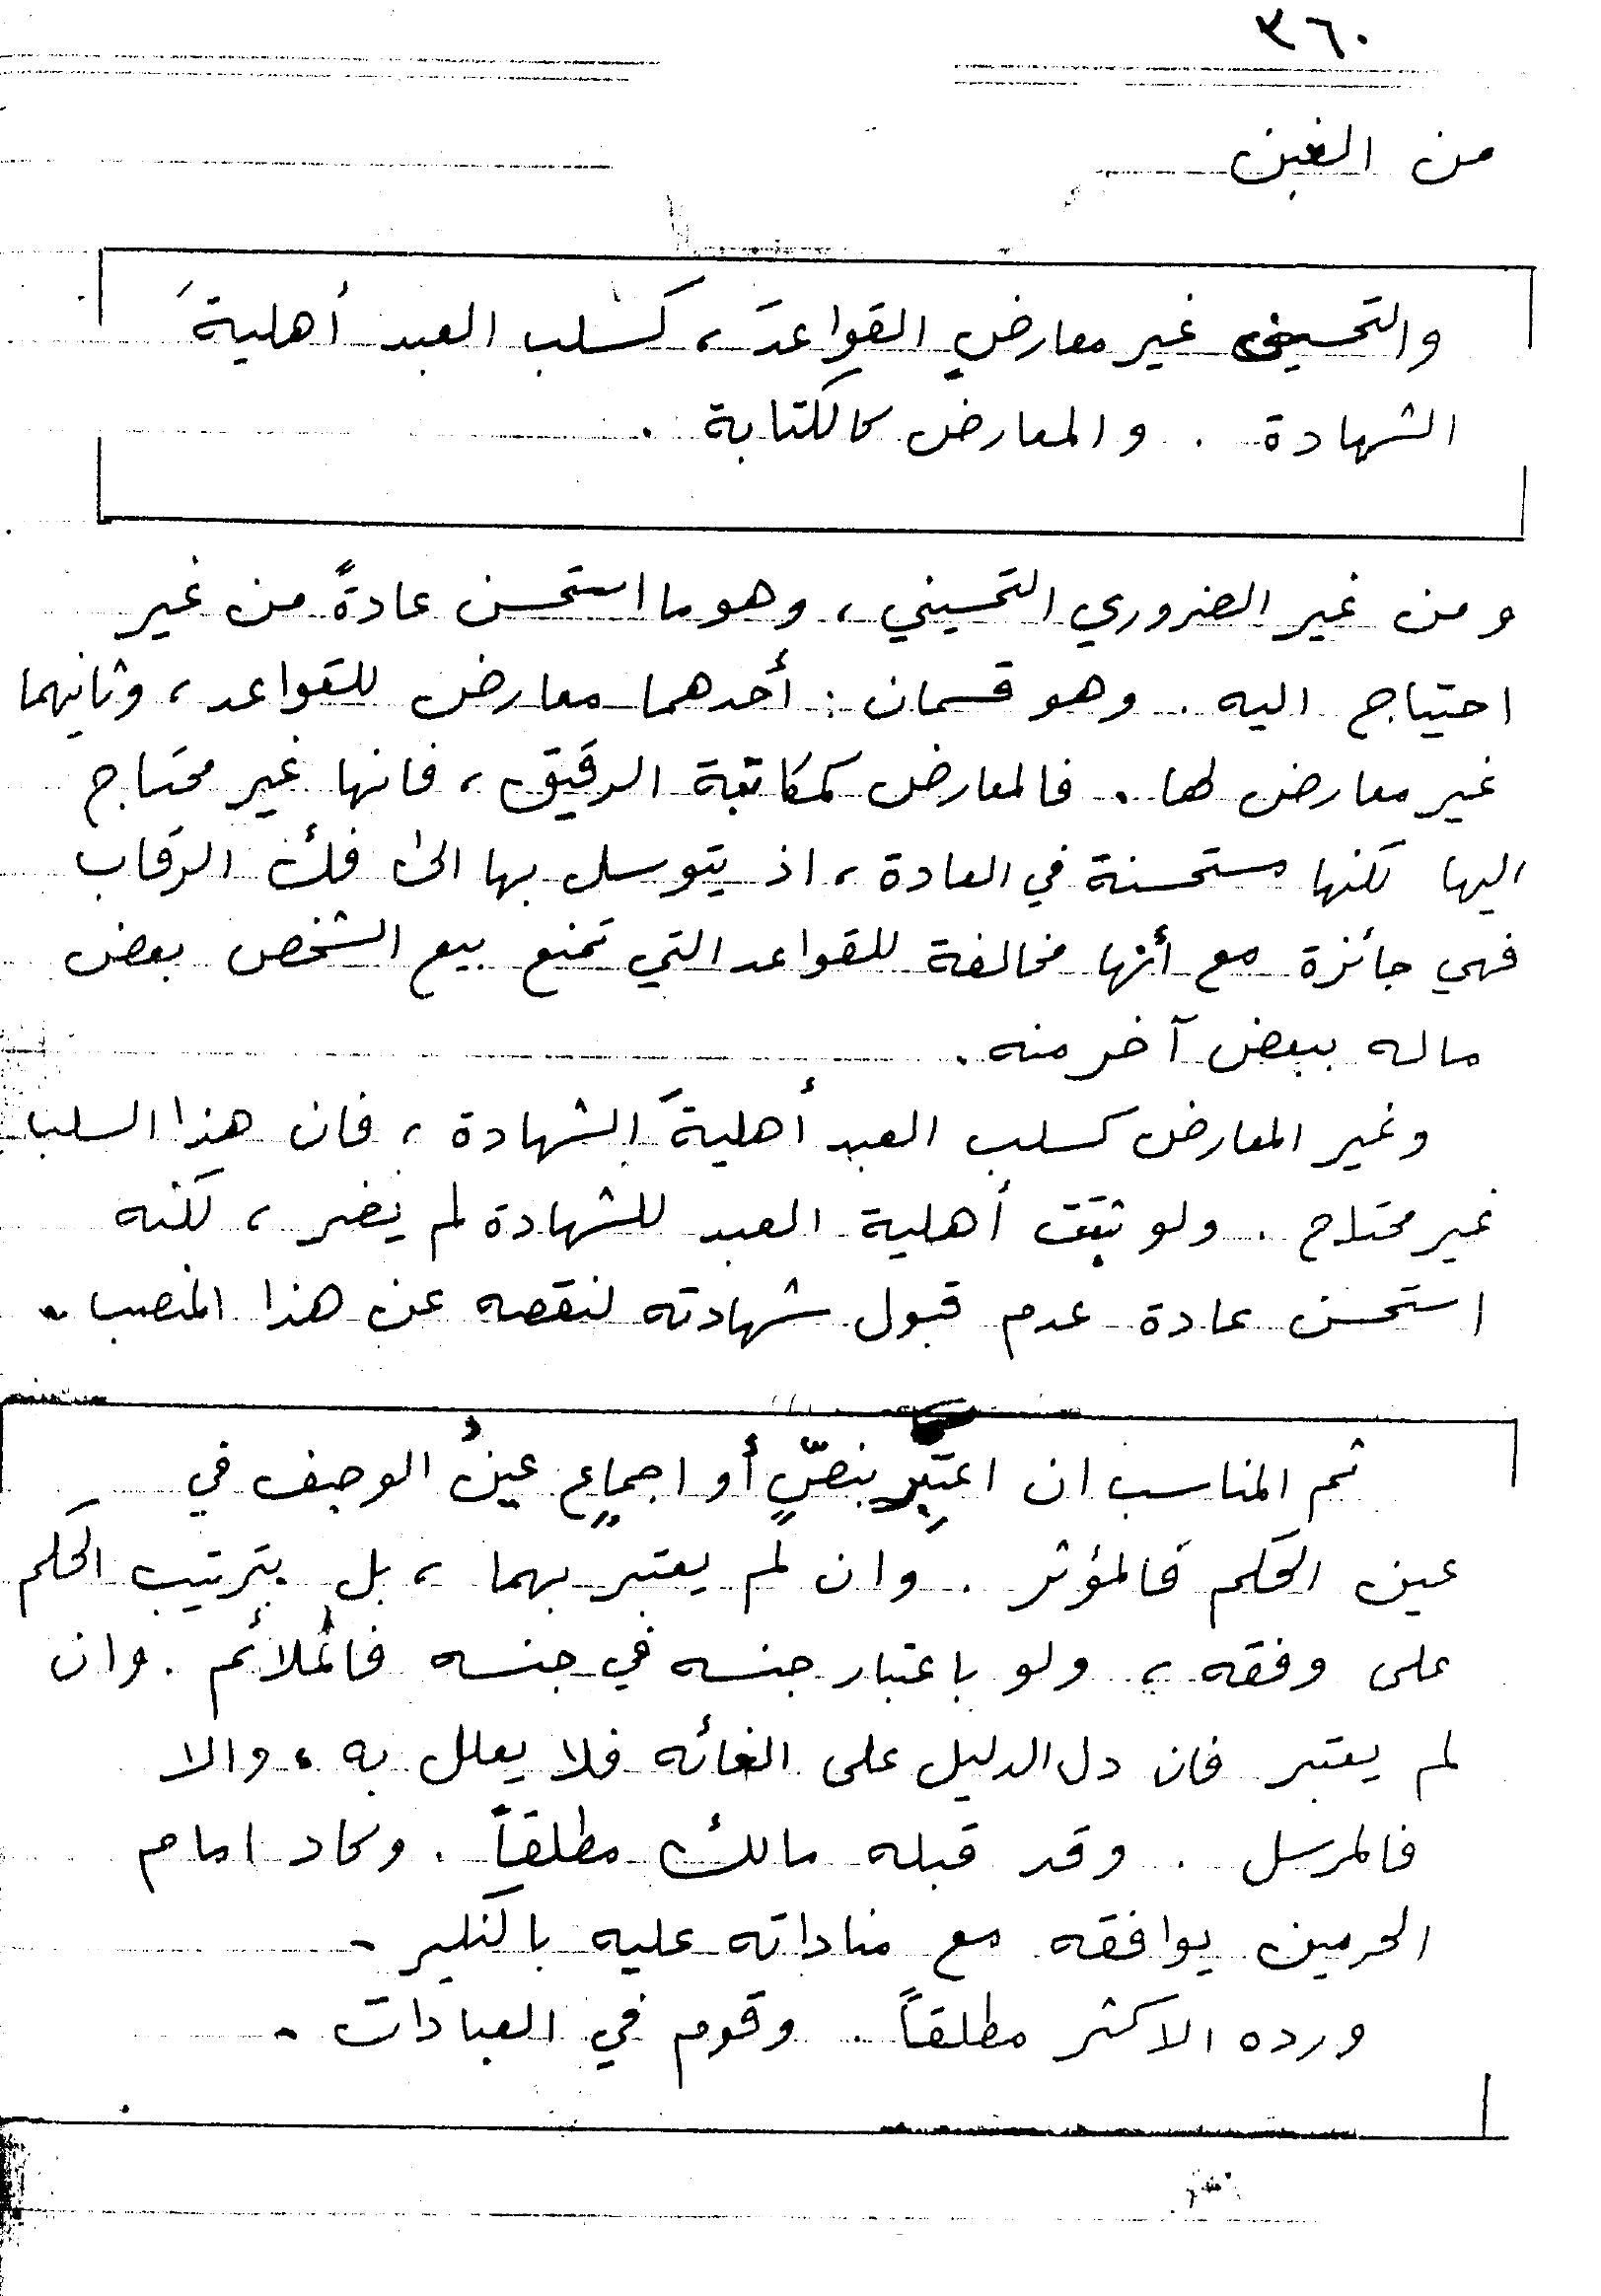 ٣٦٠
من الغبن
والتحسيني غير معارضِ القواعدَ، كسلب العبد أهليةَ
الشهادة . والمعارض كالكتابة .
ومن غير الضروري التحسيني، وهو ما استحسن عادةً من غير
احتياج اليه . وهو قسمان : أحدهما معارض للقواعد، وثانيهما
غير معارض لها . فالمعارض كمكاتبة الرقيق، فانها غير محتاج
اليها لكنها مستحسنة في العادة، اذ يتوسل بها الى فك الرقاب
فهي جائزة مع أنها مخالفة للقواعد التي تمنع بيع الشخص بعض
ماله ببعض آخر منه .
وغير المعارض كسلب العبد أهليةَ الشهادة، فان هذا السلب
غير محتاج . ولو ثبتت أهلية العبد للشهادة لم يضر، لكنه
استحسن عادة عدم قبول شهادته لنقصه عن هذا المنصب .
ثم المناسب ان اعتُبِر بنصٍّ أو اجماعٍ عينُ الوصف في
عين الحكم فالمؤثر . وان لم يعتبر بهما، بل بترتيب الحكم
على وفقه، ولو باعتبار جنسه في جنسه فالملائم . وان
لم يعتبر فان دل الدليل على الغائه فلا يعلل به، والا
فالمرسل . وقد قبله مالك مطلقاً . وكاد امام
الحرمين يوافقه مع مناداته عليه بالنكير .
ورده الاكثر مطلقاً . وقوم في العبادات .